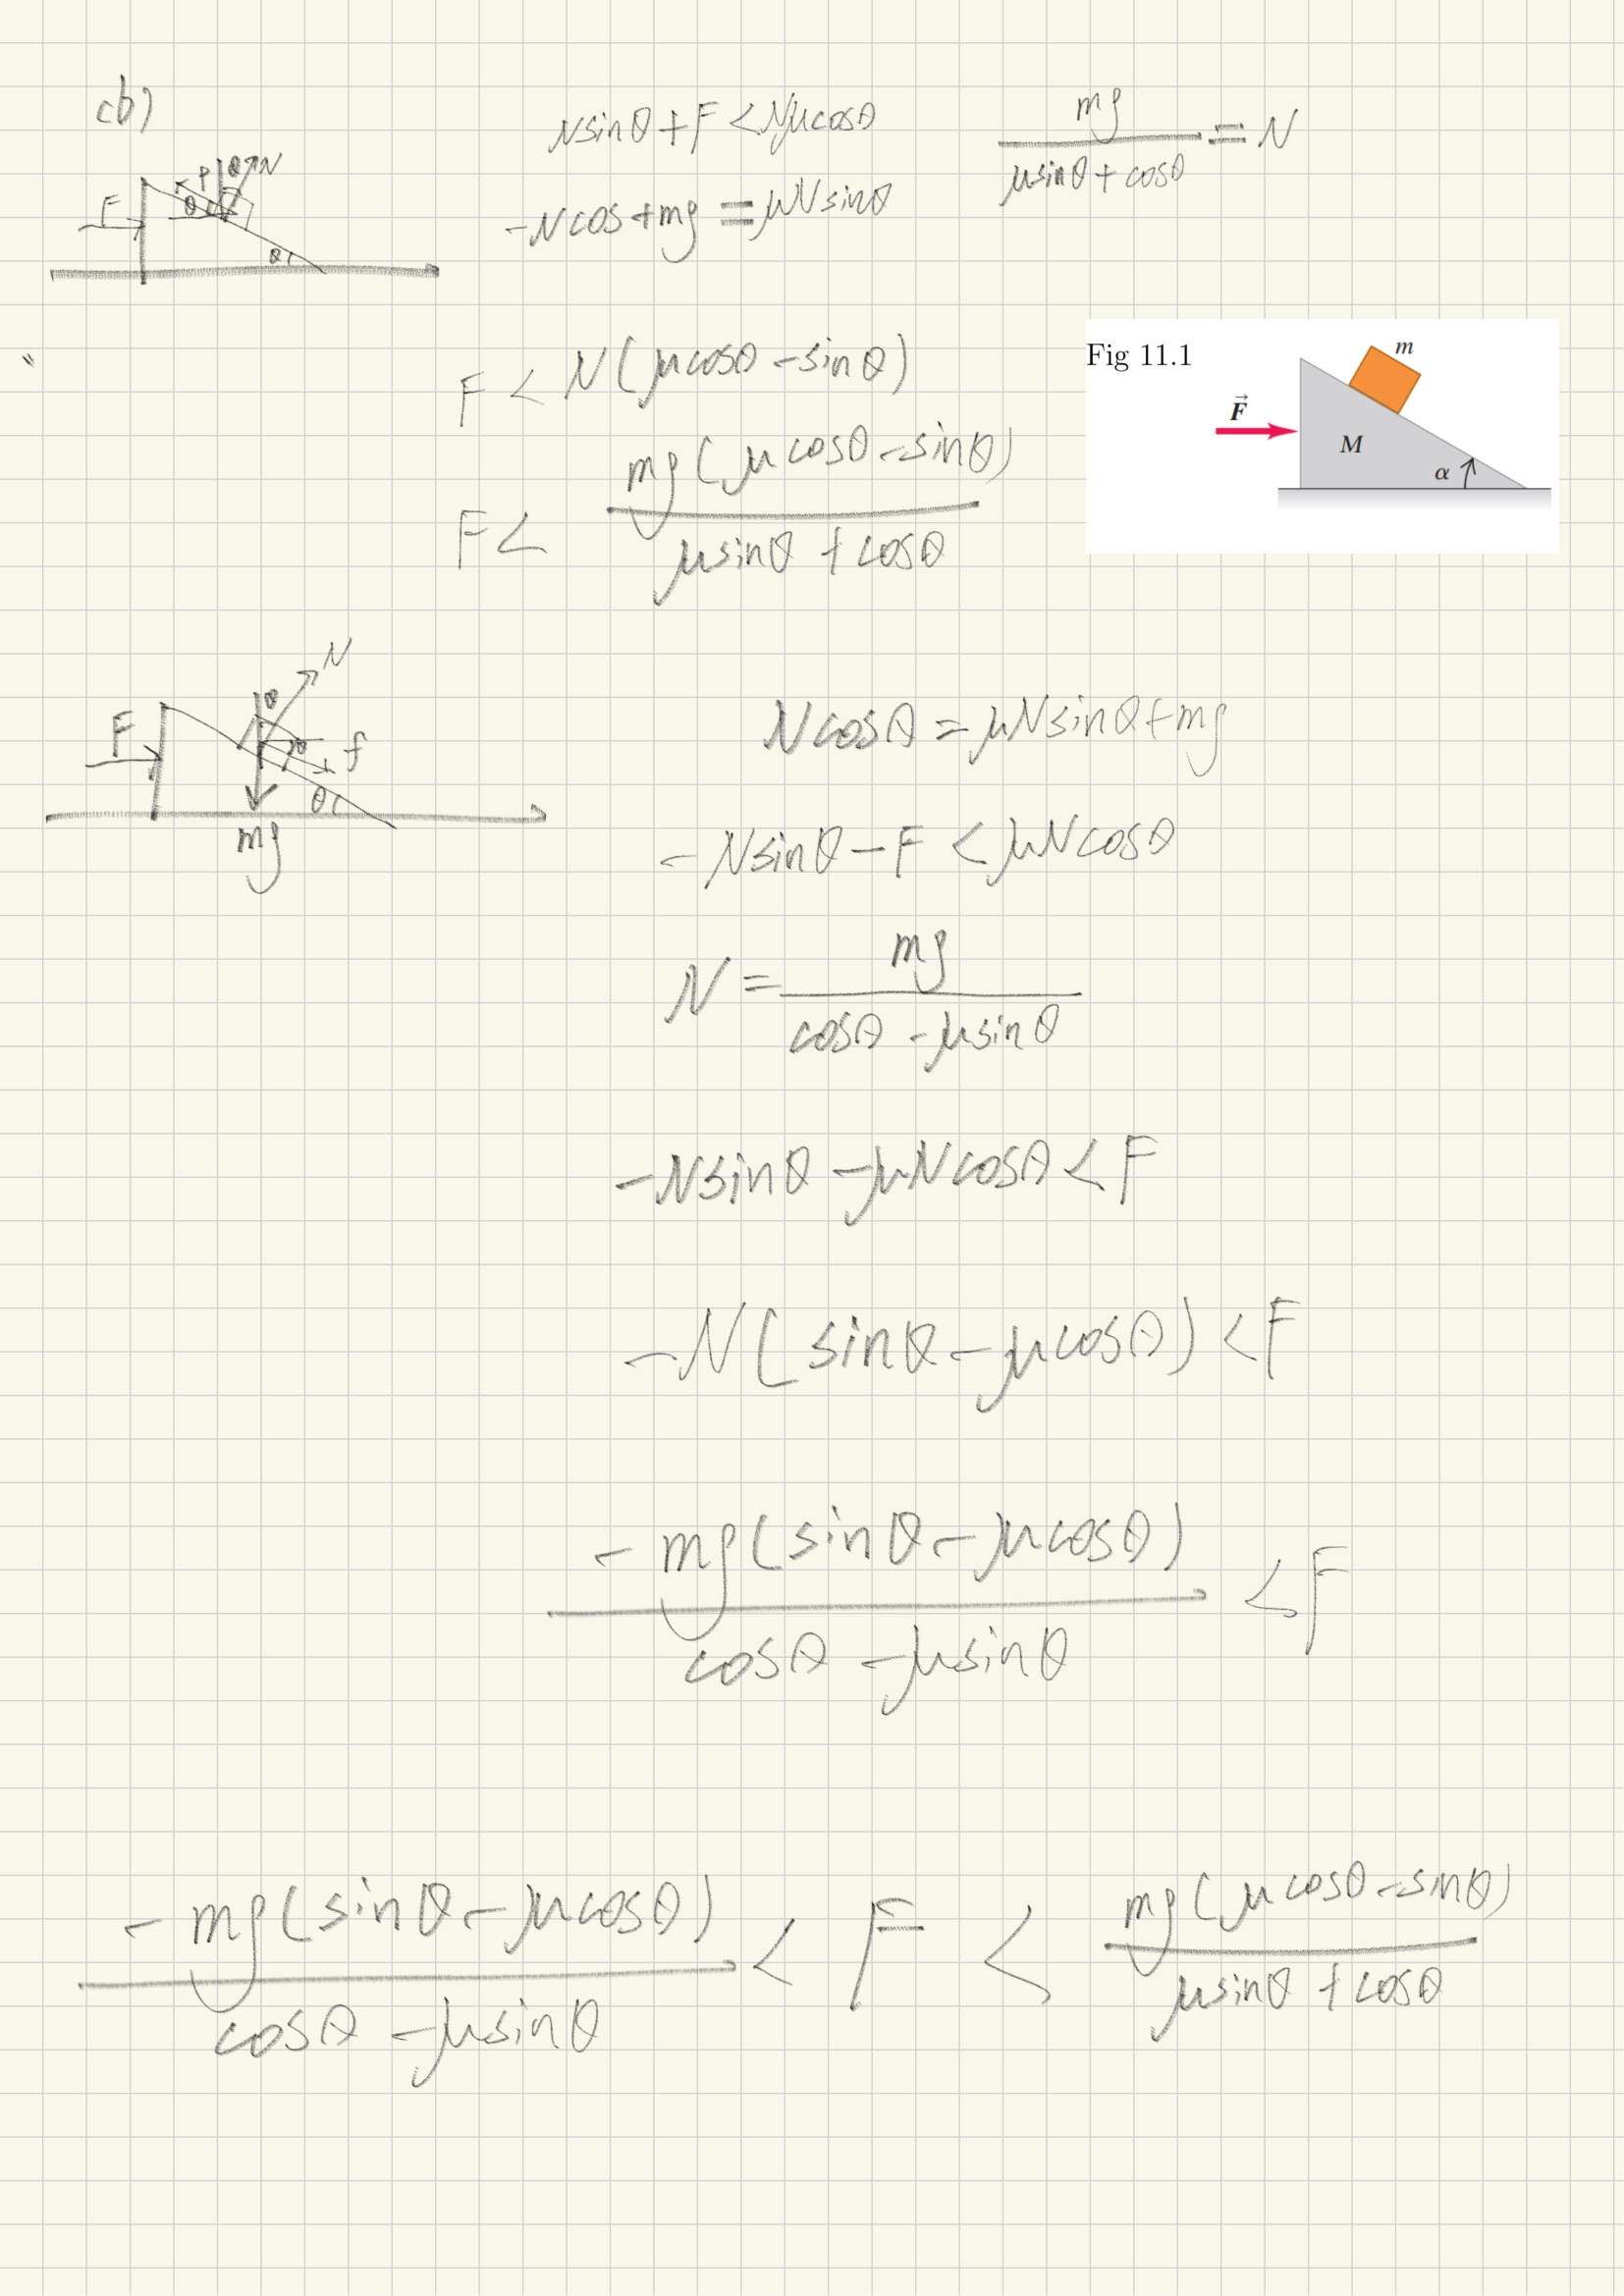 (b)
F f θ N θ θ
Nsinθ + F < Nμcosθ
-Ncos + mg = μNsinθ
mg / (μsinθ + cosθ) = N
F < N(μcosθ - sinθ)
F < mg(μcosθ - sinθ) / (μsinθ + cosθ)
Fig 11.1
m
F⃗
M
α
F θ N θ f θ
mg
Ncosθ = μNsinθ + mg
-Nsinθ - F < μNcosθ
N = mg / (cosθ - μsinθ)
-Nsinθ - μNcosθ < F
-N(sinθ - μcosθ) < F
-mg(sinθ - μcosθ) / (cosθ - μsinθ) < F
-mg(sinθ - μcosθ) / (cosθ - μsinθ) < F < mg(μcosθ - sinθ) / (μsinθ + cosθ)